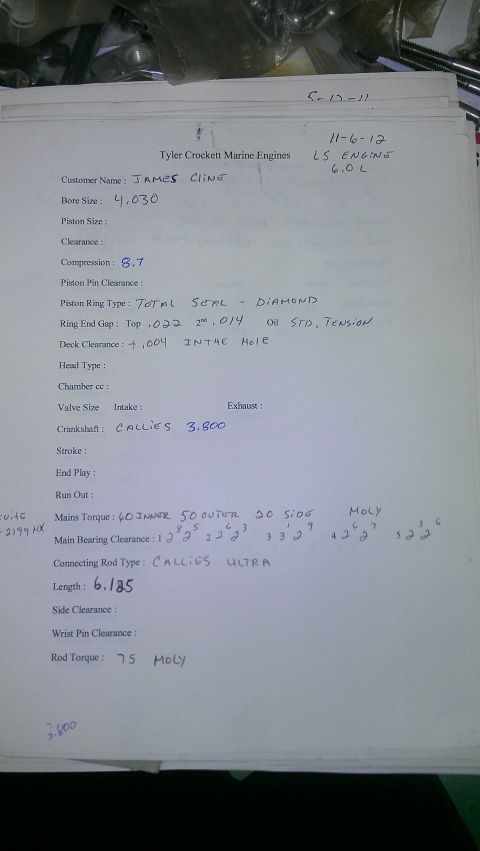 5-17-11
11-6-12
Tyler Crockett Marine Engines LS ENGINE
6.0 L
Customer Name : JAMES Cline
Bore Size : 4.030
Piston Size :
Clearance :
Compression : 8.7
Piston Pin Clearance :
Piston Ring Type : TOTAL SEAL - DIAMOND
Ring End Gap : Top .022 2nd .014 Oil STD. TENSION
Deck Clearance : + .004 IN THE HOLE
Head Type :
Chamber cc :
Valve Size Intake : Exhaust :
Crankshaft : CALLIES 3.800
Stroke :
End Play :
Run Out :
Mains Torque : 60 INNER 50 OUTER 20 SIDE MOLY
2199 HX
Main Bearing Clearance : 1 2⁸ 2⁵ 2 2⁶ 2³ 3 3¹ 2⁹ 4 2⁶ 2⁷ 5 2³ 2⁶
Connecting Rod Type : CALLIES ULTRA
Length : 6.125
Side Clearance :
Wrist Pin Clearance :
Rod Torque : 75 MOLY
3.800